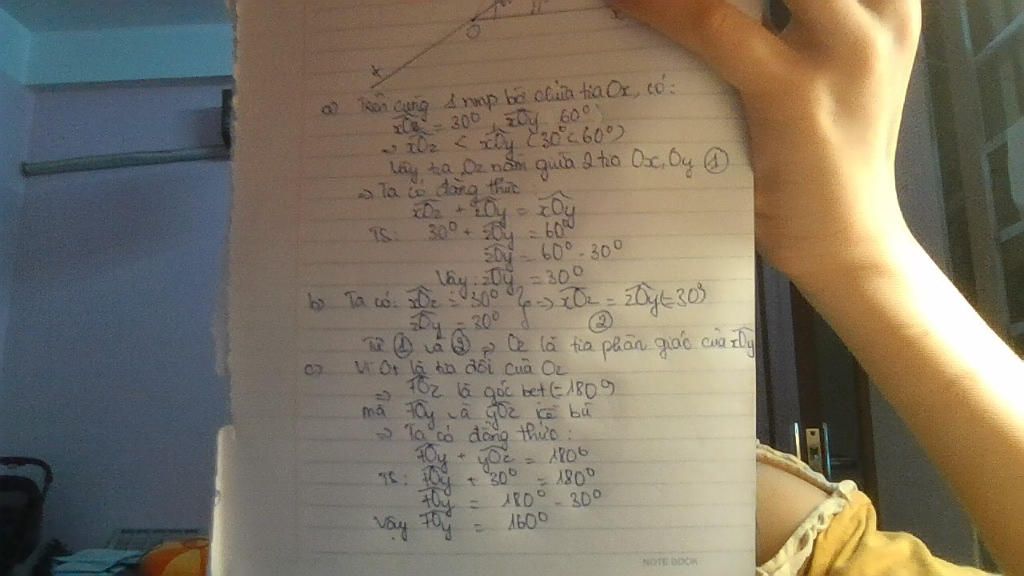 O
x
a) Trên cùng 1 nmp bờ chứa tia Ox, có:
xOz = 30° xOy 60°
⇒ xOz < xOy (30° < 60°)
Vậy tia Oz nằm giữa 2 tia Ox, Oy ①
⇒ Ta có đẳng thức:
xOz + zOy = xOy
TS: 30° + zOy = 60°
zOy = 60° - 30°
Vậy: zOy = 30°
b) Ta có: xOz = 30° } ⇒ xOz = zOy (=30°)
zOy = 30° ②
Từ ① và ② ⇒ Oz là tia phân giác của xOy
c) Vì Ot là tia đối của Oz
⇒ tOz là góc bẹt (=180°)
mà tOy và yOz kề bù
⇒ Ta có đẳng thức:
tOy + yOz = 180°
TS: tOy + 30° = 180°
tOy = 180° - 30°
Vậy tOy = 160°
NOTE BOOK